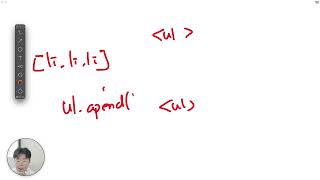 <ul>
[li, li, li]
ul.apend( <ul>